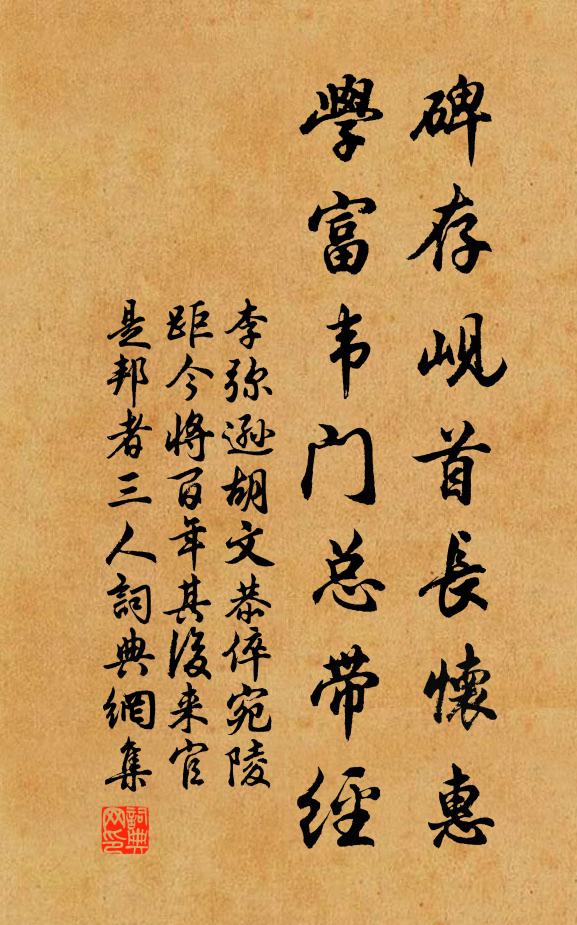 碑存峴首長懷惠
學富韦门总帶經
李弥遜胡文恭倅宛陵
距今将百年其後来官
是邦者三人詞典網集
詞典网印